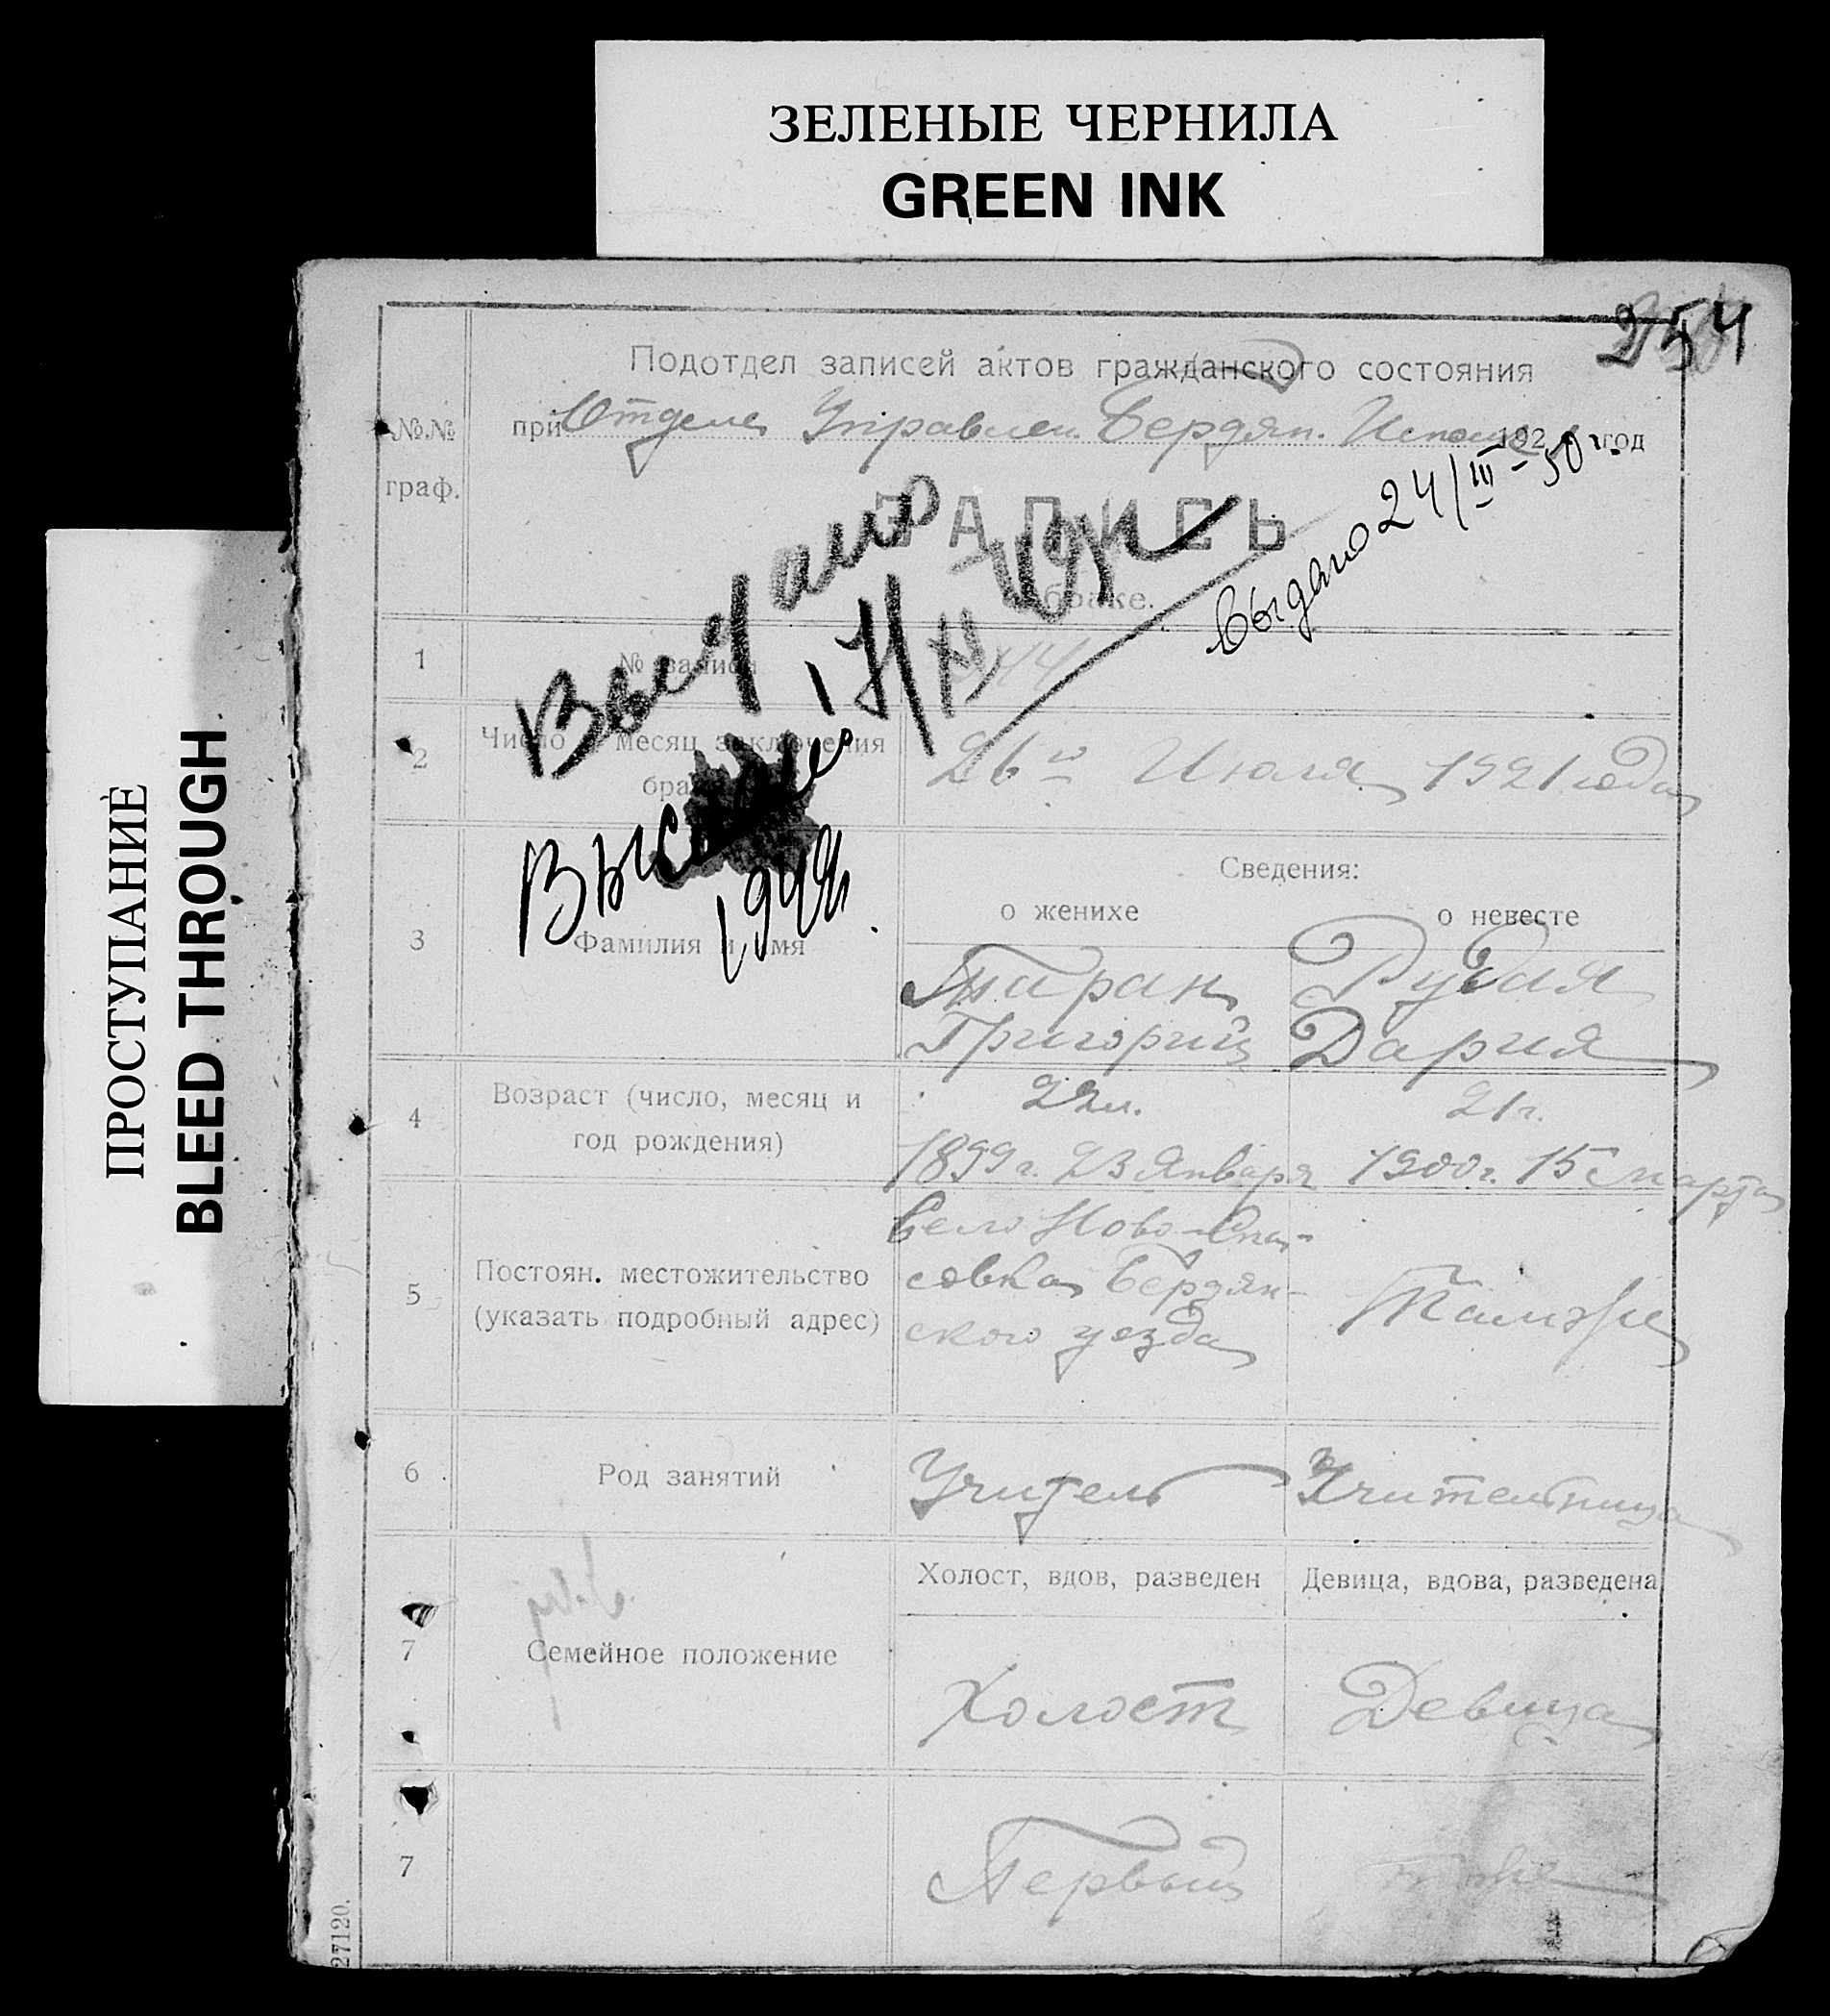 ЗЕЛЕНЫЕ ЧЕРНИЛА
GREEN INK
ПРОСТУПАНИЕ
BLEED THROUGH
254
Подотдел записей актов гражданского состояния
№№ граф.
при Отделе Управлен. Бердян. Исполк 192 год
ЗАПИСЬ
о браке.
Выдано 24/III-50
Выдано
1 № записи 44
2 Число и месяц заключения брака 26го Июля 1921 года
1944
Сведения:
о женихе о невесте
3 Фамилия и имя
Таран Рудая
Григорий Дария
4 Возраст (число, месяц и год рождения)
22 л. 21 г.
1899 г. 23 Января 1900 г. 15 марта
5 Постоян. местожительство (указать подробный адрес)
Село Ново-Спа-
совка Бердян-
ского уезда
Тамже
6 Род занятий Учитель Учительница
Холост, вдов, разведен Девица, вдова, разведена
7 Семейное положение
Холост Девица
7 Первый
27120.